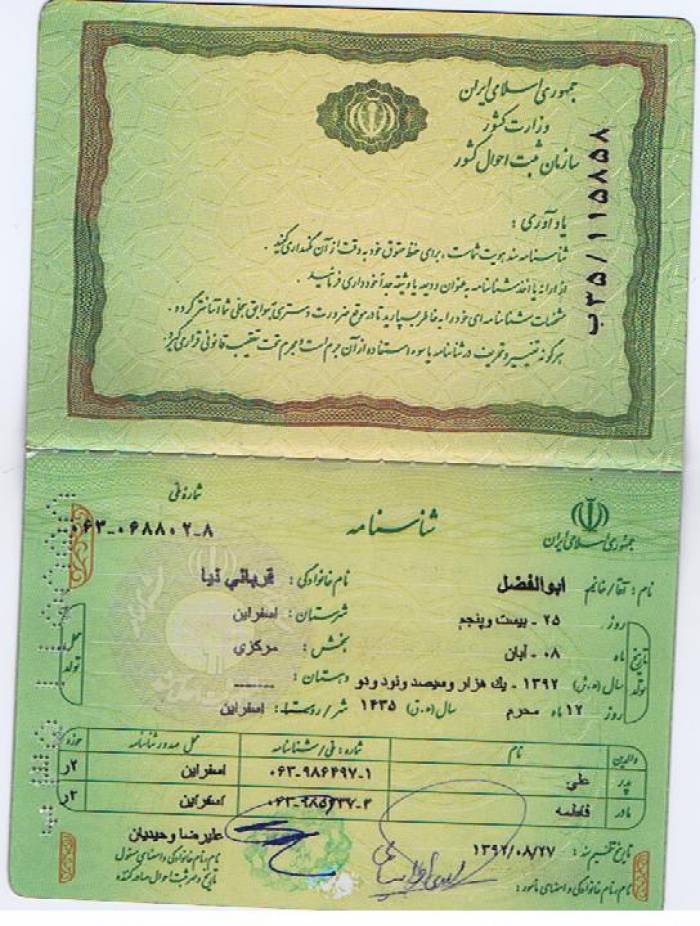 جمهوری اسلامی ایران
وزارت کشور
سازمان ثبت احوال کشور
ب۳۵/۱۱۵۸۵۸
یادآوری :
شناسنامه سند هویت شماست ، برای حفظ حقوق خود به دقت از آن نگهداری کنید .
از ارائه یا اخذ شناسنامه به عنوان ودیعه یا وثیقه جداً خودداری فرمائید .
مشخصات شناسنامه ای خود را به خاطر بسپارید تا در موقع ضرورت دسترسی به سوابق سجلی شما آسانتر گردد .
هرگونه تغییر و تحریف در شناسنامه یا سوء استفاده از آن جرم است و مجرم تحت تعقیب قانونی قرار می گیرد .
جمهوری اسلامی ایران
شناسنامه
شماره ملی
۰۶۳-۰۶۸۸۰۲-۸
نام : آقا/خانم ابوالفضل نام خانوادگی : قرباني نیا
تاریخ تولد
روز ۲۵ - بیست وپنجم
ماه ۰۸ - آبان
سال (ه.ش) ۱۳۹۲ - یك هزار وسیصد ونود ودو
روز ۱۲ ماه محرم سال (ه.ق) ۱۴۳۵
محل تولد
شهرستان : اسفراین
بخش : مرکزي
دهستان : -------
شهر / روستا : اسفراین
والدین نام شماره : ملی / شناسنامه محل صدور شناسنامه حوزه
پدر علي ۰۶۳-۹۸۶۴۹۷-۱ اسفراین ۲ر
مادر فاطمه اسفراین ۲ر
تاریخ تنظیم سند : ۱۳۹۲/۰۸/۲۷
نام و نام خانوادگی و امضای مامور :
علیرضا وحیدیان
نام و نام خانوادگی و امضای مسئول